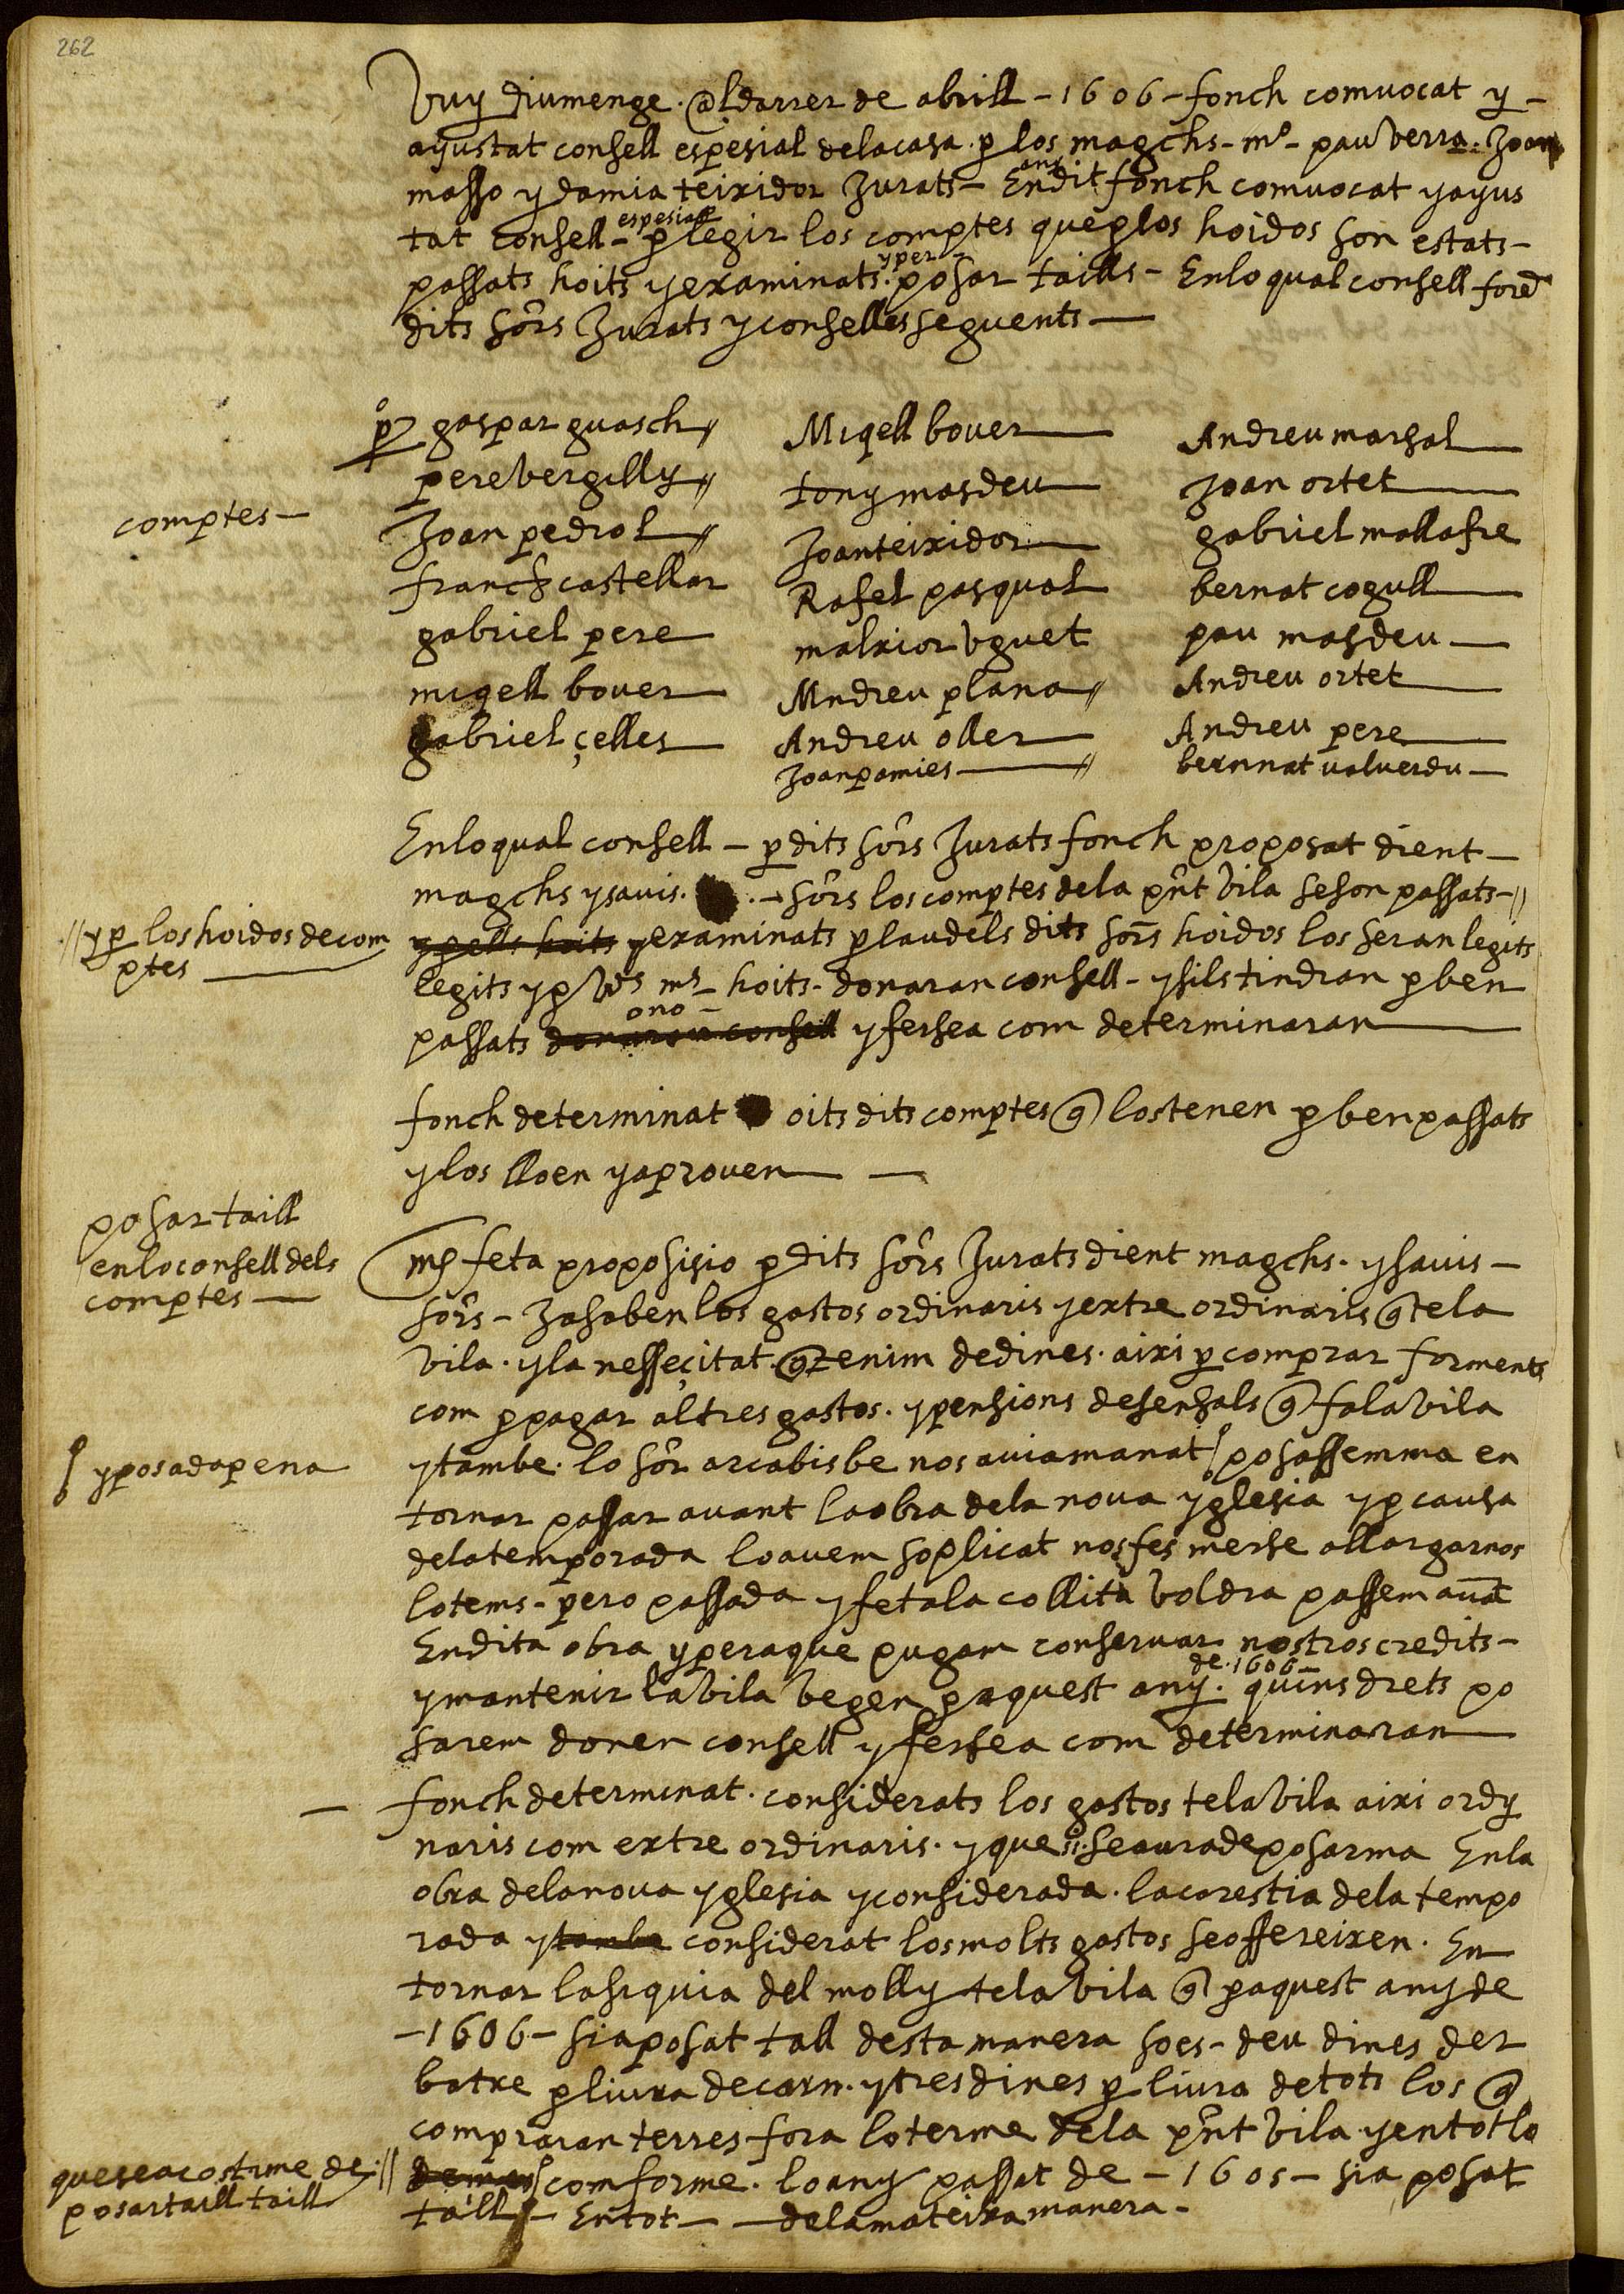 262
Vuy diumenge. @l darrer de abrill - 1606 - fonch comvocat y -
ayustat consell espesial de la casa. p los magchs - mº - pau verra. Joan
masso y damia teixidor Jurats - En dit fonch comvocat y ayus
ans
tat consell - p legir los comptes que p los hoidos son estats -
espesiall
passats hoits y examinats. posar taills - En lo qual consell foren
y per
dits sors Jurats y consellers seguents —
po gaspar guasch //
pere vergilly //
Joan pedrol //
franch castellar
gabriel pere
miqell bover
gabriel çelles
Miqell bover
tony masdeu
Joan teixidor
Rafel pasqual
malxior vguet
Andreu plana //
Andreu oller
Joan pamies //
Andreu marsal
Joan ortet
gabriel mallafre
bernat cogull
pau masdeu
Andreu ortet
Andreu pere
bernnat valverdu
comptes —
En lo qual consell - p dits sors Jurats fonch proposat dient -
magchs y savis. . - sors los comptes de la pnt vila se son passats - //
y pells hoits y examinats p laudels dits sors hoidos los seran legits
// y p los hoidos de com
ptes —
legits y p vres ms - hoits - donaran consell - y sils tindran p ben
passats donaran consell y fersea com determinaran
o no -
fonch determinat oits dits comptes q los tenen p ben passats
y los lloen y aproven — —
posar taill
en lo consell dels
comptes —
ms feta proposisio p dits sors Jurats dient magchs. y savis -
sors - Ja saben los gastos ordinaris y extre ordinaris q te la
vila. y la nesseçitat. q tenim de dines. aixi p comprar forments
com p pagar altres gastos. y pensions de sensals q fa la vila
y tambe. lo sor arcabisbe nos avia manat posassem ma en
y posada pena
tornar passar avant la obra de la nova yglesia y p causa
de la temporada lo avem soplicat nos fes merse allargarnos
lo tems - pero passada y feta la collita voldra passem avat
En dita obra y pera que pugam conservar nostros credits -
y mantenir la vila vegen p aquest any. quins drets po
de. 1606 -
sarem donen consell y fersea com determinaran
— fonch determinat. considerats los gastos te la vila aixi ordy
naris com extre ordinaris. y que si. se aura de posar ma En la
obra de la nova yglesia y considerada. la carestia de la tempo
rada y tambe considerat los molts gastos se offereixen. En
tornar la siquia del molly te la vila q p aquest any de
- 1606 - sia posat tall desta manera soes - deu dines der
batre p liura de carn. y tres dines p liura de tots los q
compraran terres fora lo terme de la pnt vila y en tot lo
demes comforme. lo any passat de - 1605 - sia posat
que sea costume de //
posar taill taill
taill - En tot — — de la mateixa manera -